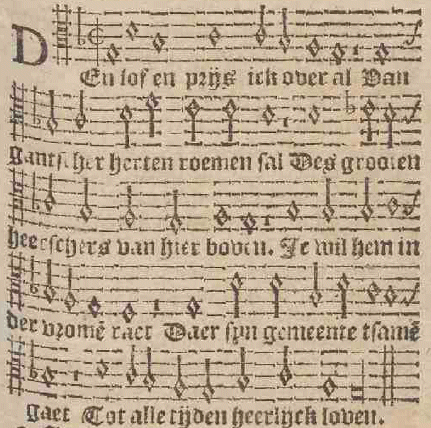 DEn lof en prijs ick over al Van
gantscher herten roemen sal Des grooten
heerschers van hier boven. Je wil hem in
der vromē raet Daer sijn gemeente tsamē
gaet Tot alle tijden heerlijck loven.